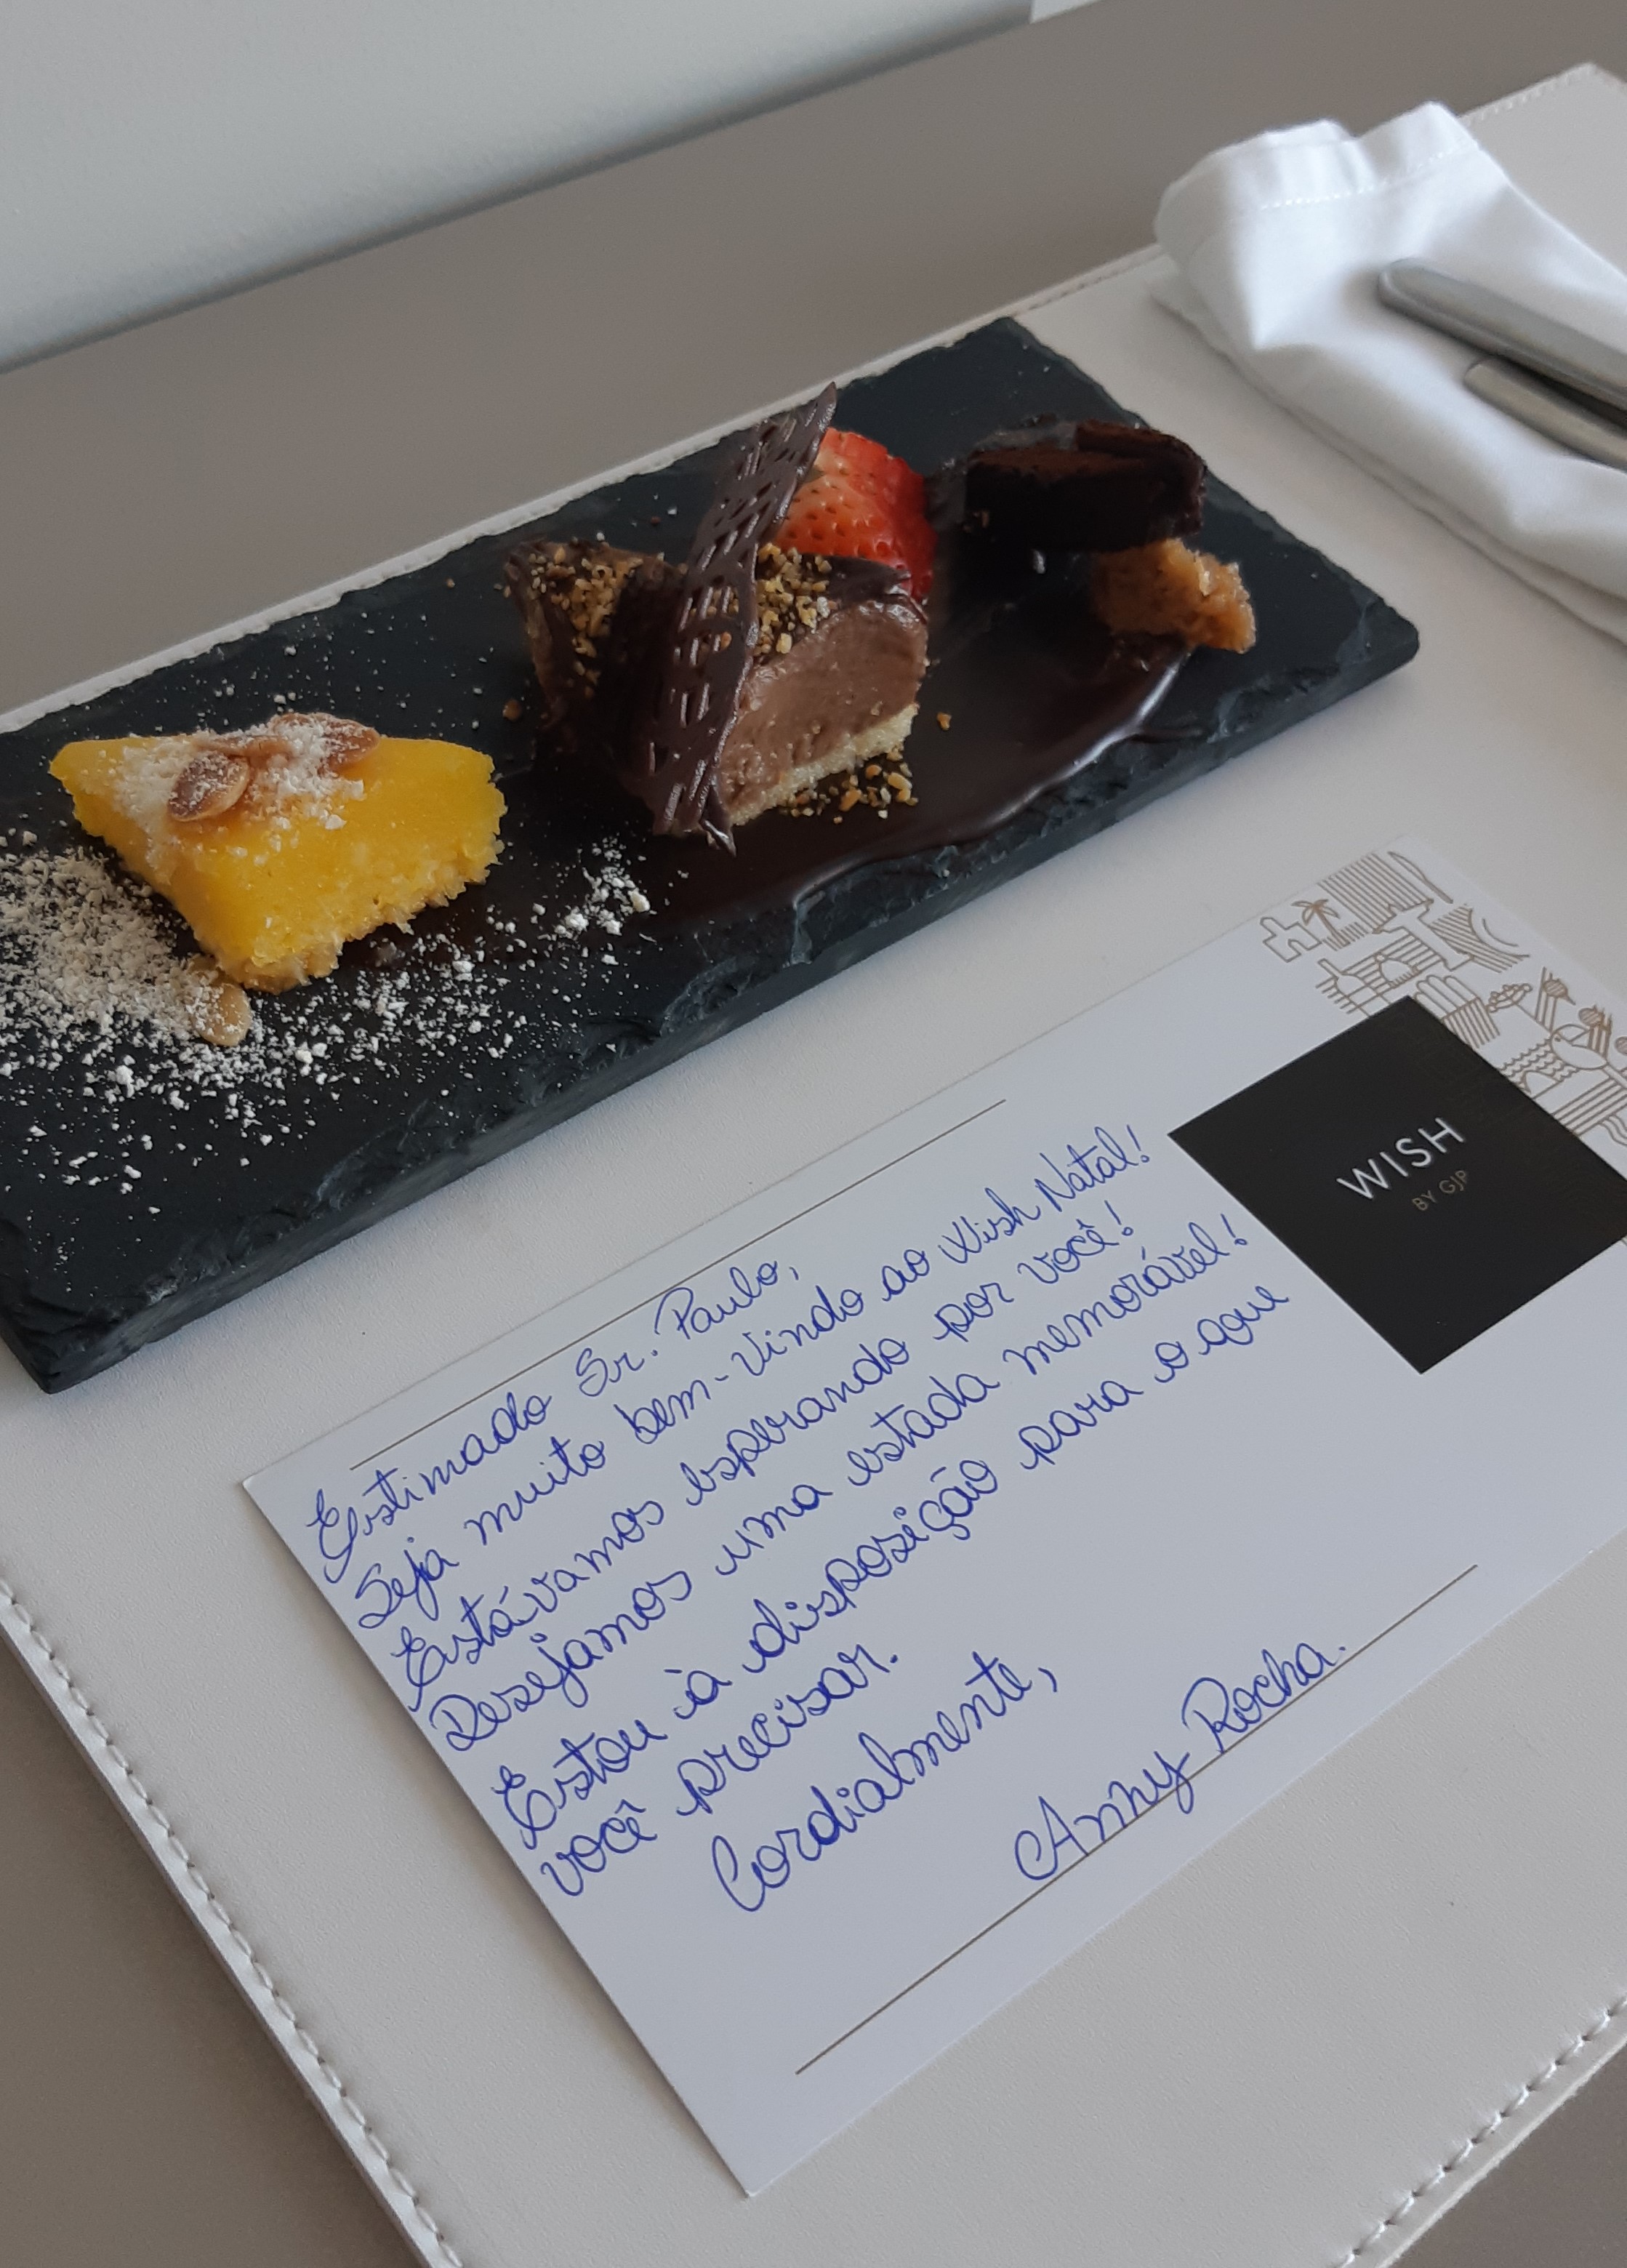 WISH
BY GJP
Estimado Sr. Paulo,
Seja muito bem-vindo ao Wish Natal!
Estávamos esperando por você!
Desejamos uma estada memorável!
Estou à disposição para o que
você precisar.
Cordialmente,
Anny Rocha.